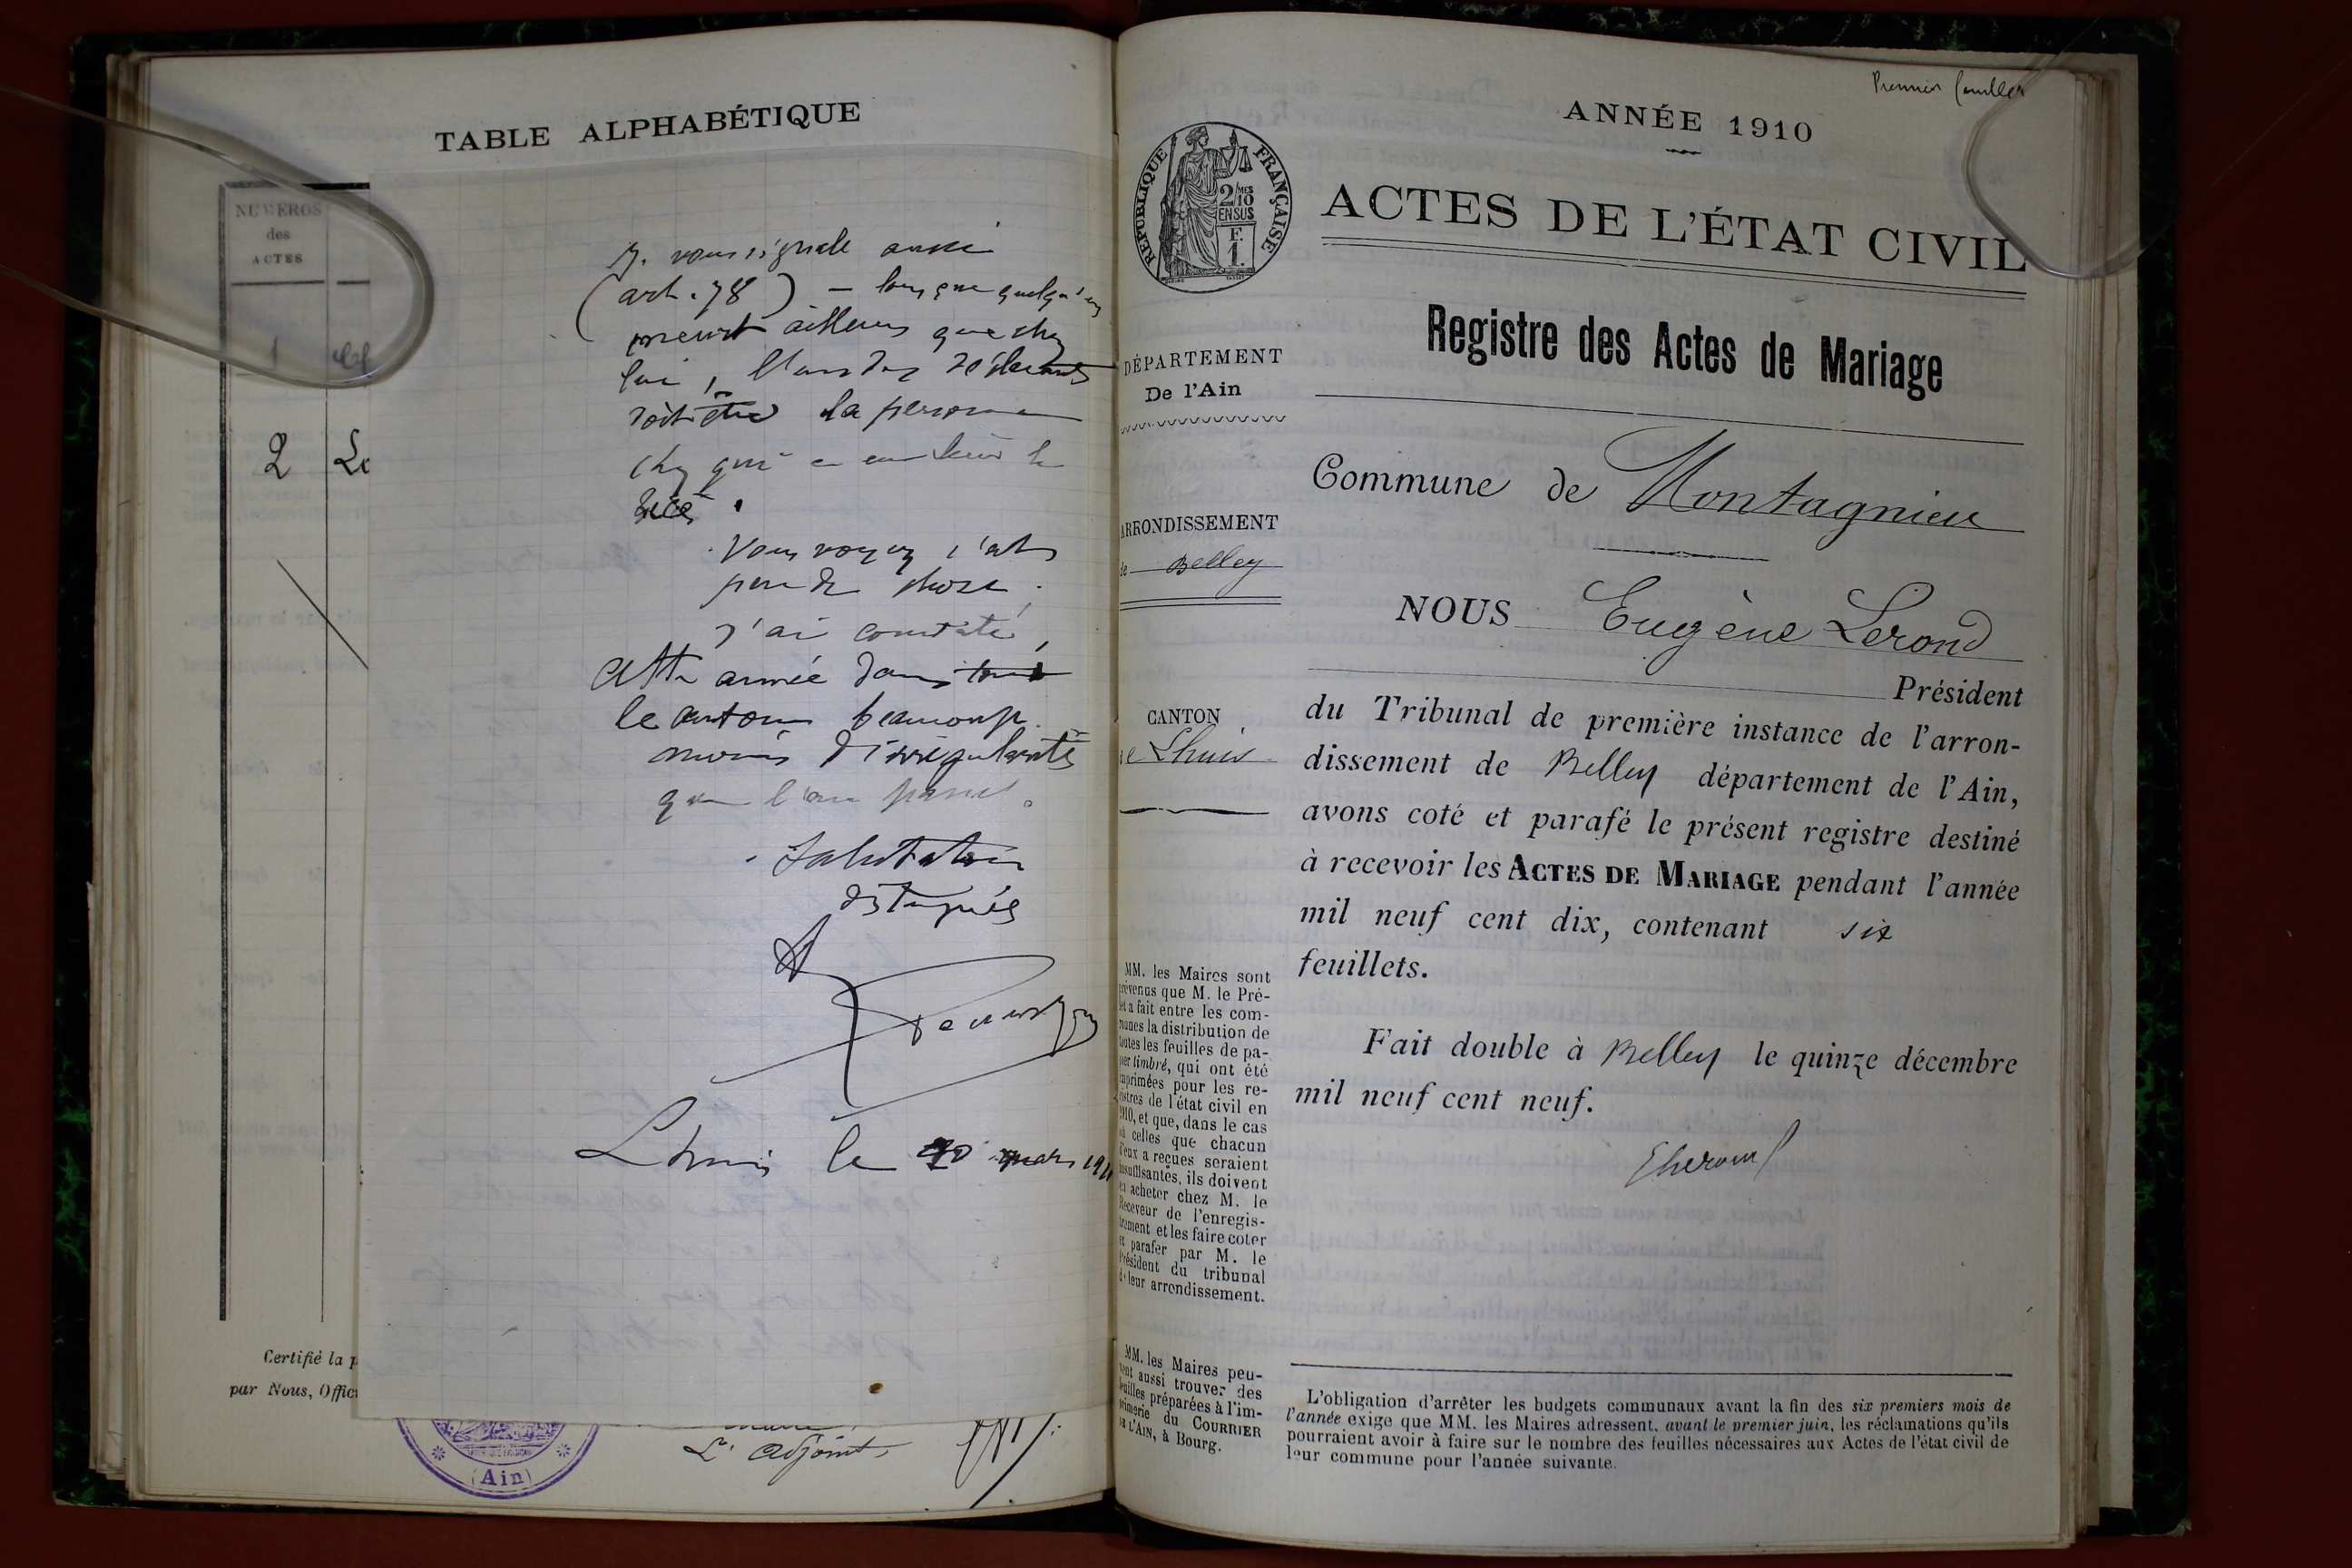 TABLE ALPHABÉTIQUE
NUMEROS
des
ACTES
1
2 Le
Je vous signale aussi
(art. 78) — lorsque quelqu'un
meurt ailleurs que chez
lui, l'un des déclarants
doit être la personne
chez qui a eu lieu le
décès.
Vous voyez c'est
peu de chose.
J'ai constaté,
cette année dans
le canton beaucoup
moins d'irrégularités
que l'an passé.
Salutations
distinguées
Lhuis le 20 mars
Certifié la p
par Nous, Offici
(Ain)
L'adjoint
Premier feuillet
ANNÉE 1910
RÉPUBLIQUE FRANÇAISE
2/10 MES
EN SUS
F.
1.
ACTES DE L'ÉTAT CIVIL
Registre des Actes de Mariage
DÉPARTEMENT
De l'Ain
ARRONDISSEMENT
de Belley
CANTON
de Lhuis
MM. les Maires sont
prévenus que M. le Pré-
fet a fait entre les com-
munes la distribution de
toutes les feuilles de pa-
pier timbré, qui ont été
imprimées pour les re-
gistres de l'état civil en
1910, et que, dans le cas
où celles que chacun
d'eux a reçues seraient
insuffisantes, ils doivent
en acheter chez M. le
Receveur de l'enregis-
trement et les faire coter
et parafer par M. le
Président du tribunal
de leur arrondissement.
MM. les Maires peu-
vent aussi trouver des
feuilles préparées à l'im-
primerie du COURRIER
DE L'AIN, à Bourg.
Commune de Montagnieu
NOUS Eugène Lerond
Président
du Tribunal de première instance de l'arron-
dissement de Belley département de l'Ain,
avons coté et parafé le présent registre destiné
à recevoir les ACTES DE MARIAGE pendant l'année
mil neuf cent dix, contenant six
feuillets.
Fait double à Belley le quinze décembre
mil neuf cent neuf.
L'obligation d'arrêter les budgets communaux avant la fin des six premiers mois de
l'année exige que MM. les Maires adressent, avant le premier juin, les réclamations qu'ils
pourraient avoir à faire sur le nombre des feuilles nécessaires aux Actes de l'état civil de
leur commune pour l'année suivante.